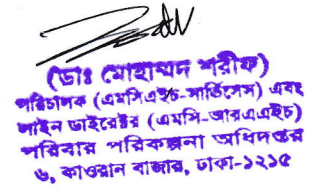 (ডাঃ মোহাম্মদ শরীফ)
পরিচালক (এমসিএইচ-সার্ভিসেস) এবং
লাইন ডাইরেক্টর (এমসি-আরএএইচ)
পরিবার পরিকল্পনা অধিদপ্তর
৬, কাওরান বাজার, ঢাকা-১২১৫